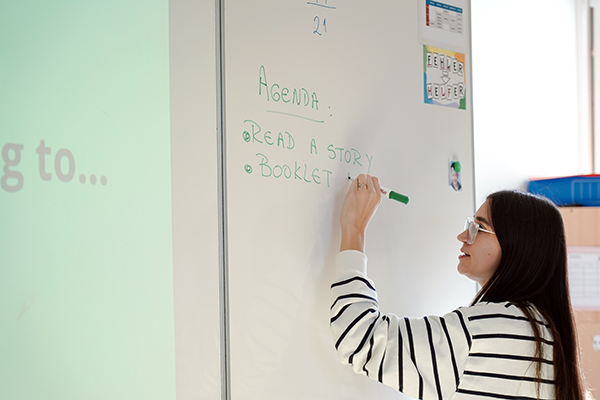 ng to...
21
AGENDA:
READ A STORY
BOOKLET
FEHLER
HELFER